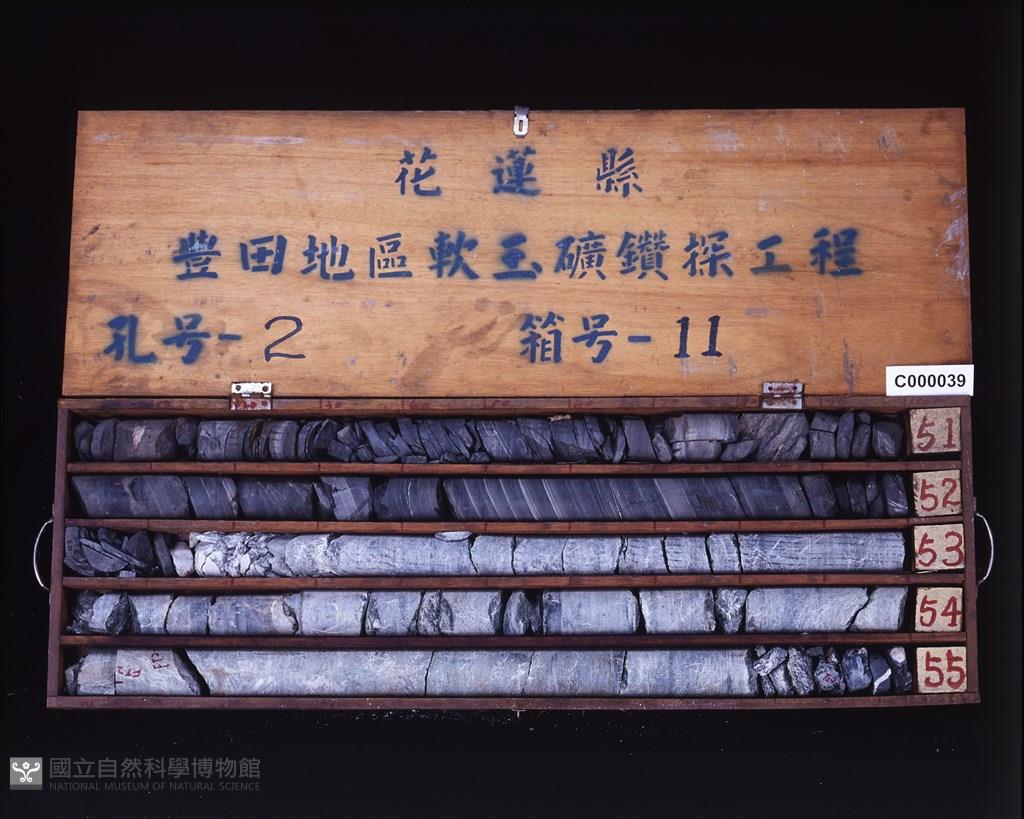 花蓮縣
豐田地區軟玉礦鑽探工程
孔号-2 箱号-11
C000039
51
52
53
54
55
國立自然科學博物館
NATIONAL MUSEUM OF NATURAL SCIENCE